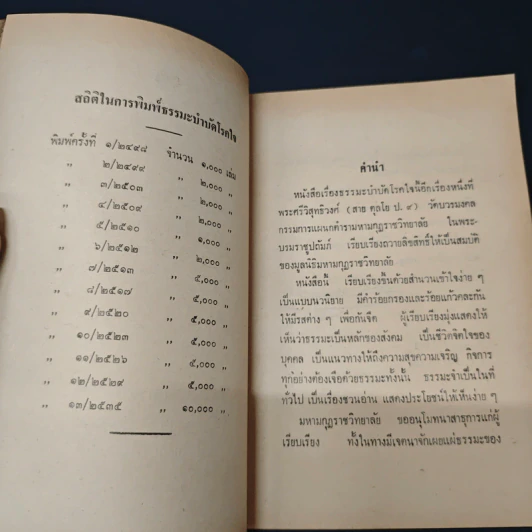 สถิติในการพิมพ์ธรรมะบำบัดโรคใจ
พิมพ์ครั้งที่ ๑/๒๔๙๘ จำนวน ๑,๐๐๐ เล่ม
" ๒/๒๔๙๙ " ๒,๐๐๐ "
" ๓/๒๕๐๓ " ๒,๐๐๐ "
" ๔/๒๕๐๙ " ๒,๐๐๐ "
" ๕/๒๕๑๐ " ๑,๐๐๐ "
" ๖/๒๕๑๒ " ๒,๐๐๐ "
" ๗/๒๕๑๓ " ๕,๐๐๐ "
" ๘/๒๕๑๗ " ๕,๐๐๐ "
" ๙/๒๕๒๐ " ๕,๐๐๐ "
" ๑๐/๒๕๒๓ " ๕,๐๐๐ "
" ๑๑/๒๕๒๖ " ๕,๐๐๐ "
" ๑๒/๒๕๒๙ " ๕,๐๐๐ "
" ๑๓/๒๕๓๕ " ๑๐,๐๐๐ "
คำนำ
หนังสือเรื่องธรรมะบำบัดโรคใจนี้อีกเรื่องหนึ่งที่
พระศรีวิสุทธิวงศ์ (สาย ตุลโย ป. ๙) วัดบวรมงคล
กรรมการแผนกตำรามหามกุฏราชวิทยาลัย ในพระ-
บรมราชูปถัมภ์ เรียบเรียงถวายลิขสิทธิ์ให้เป็นสมบัติ
ของมูลนิธิมหามกุฏราชวิทยาลัย
หนังสือนี้ เรียบเรียงขึ้นด้วยสำนวนเข้าใจง่าย ๆ
เป็นแบบนวนิยาย มีคำร้อยกรองและร้อยแก้วคละกัน
ให้มีรสต่าง ๆ เพื่อกันจืด ผู้เรียบเรียงมุ่งแสดงให้
เห็นว่าธรรมะเป็นหลักของสังคม เป็นชีวิตจิตใจของ
บุคคล เป็นแนวทางให้ถึงความสุขความเจริญ กิจการ
ทุกอย่างต้องเจือด้วยธรรมะทั้งนั้น ธรรมะจำเป็นในที่
ทั่วไป เป็นเรื่องชวนอ่าน แสดงประโยชน์ให้เห็นง่าย ๆ
มหามกุฏราชวิทยาลัย ขออนุโมทนาสาธุการแก่ผู้
เรียบเรียง ทั้งในทางมีเจตนาจักเผยแผ่ธรรมะของ